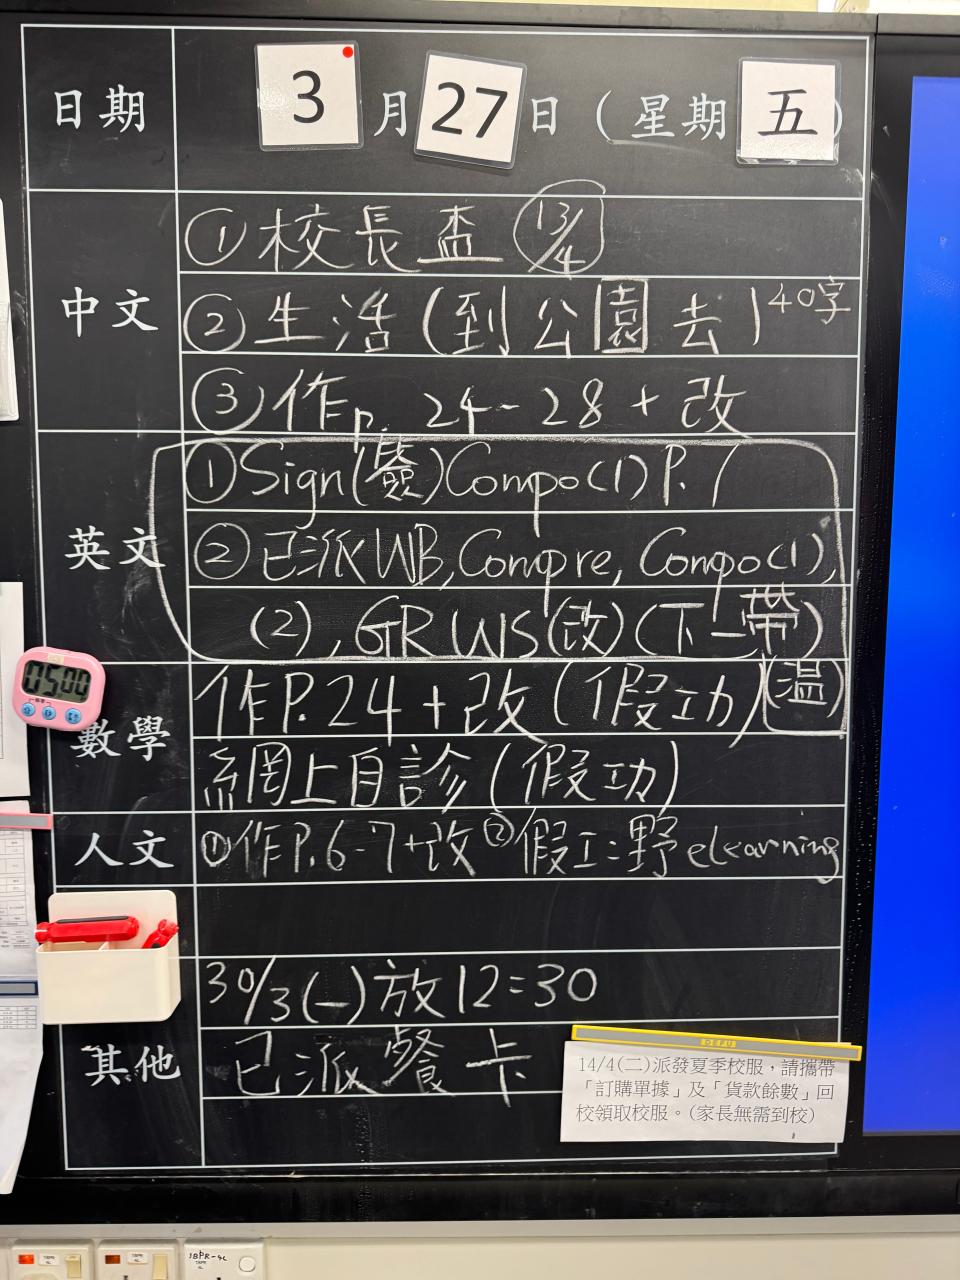 日期 3月27日(星期五)
中文
①校長盃 13/4
②生活(到公園去)40字
③作p.24-28+改
英文
①Sign(簽)Compo(1)P.1
②已派WB,Compre,Compo(1),
(2),GRWS(改)(下一帶)
(溫)
數學
作P.24+改(假功)
網上自診(假功)
人文
①作P.6-7+改②假工:野eLearning
其他
30/3(一)放12:30
已派餐卡
DEFU
14/4(二)派發夏季校服,請攜帶
「訂購單據」及「貨款餘數」回
校領取校服。(家長無需到校)
05:00
JBPR-4L